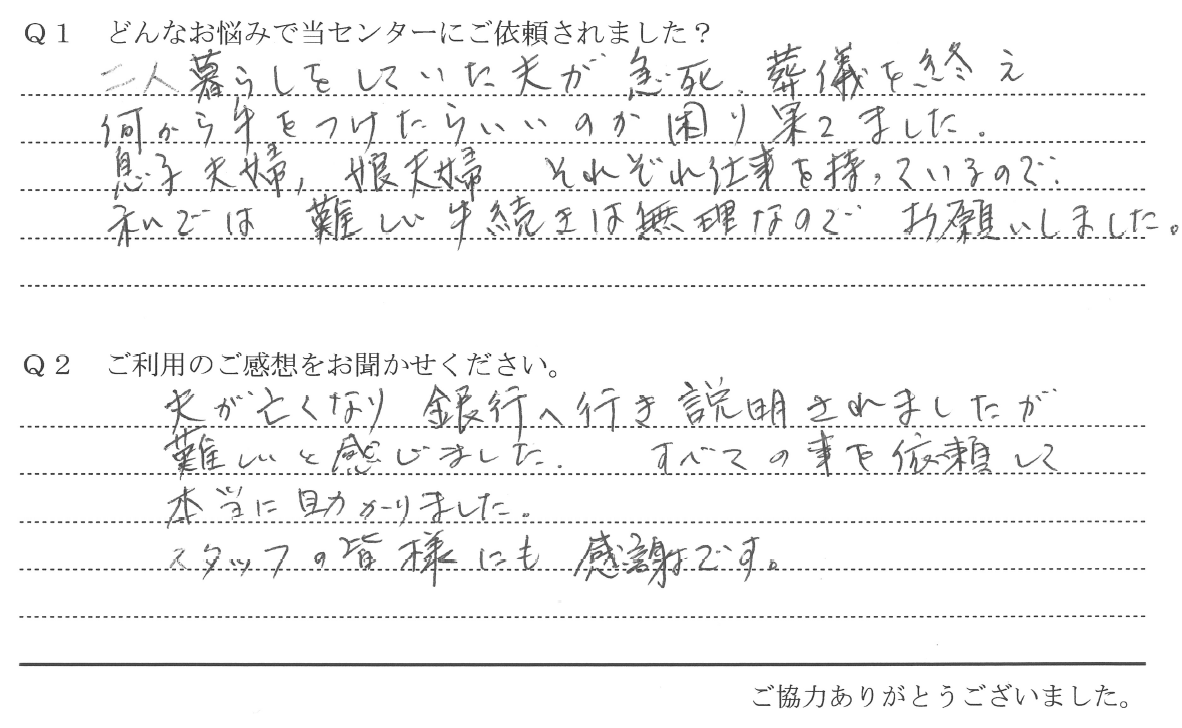 Q1 どんなお悩みで当センターにご依頼されました?
二人暮らしをしていた夫が急死、葬儀を終え
何から手をつけたらいいのか困り果てました。
息子夫婦,娘夫婦 それぞれ仕事を持っているので、
私では難しい手続きは無理なので お願いしました。
Q2 ご利用のご感想をお聞かせください。
夫が亡くなり 銀行へ行き説明されましたが
難しいと感じました。 すべての事を依頼して
本当に助かりました。
スタッフの皆様にも感謝です。
ご協力ありがとうございました。